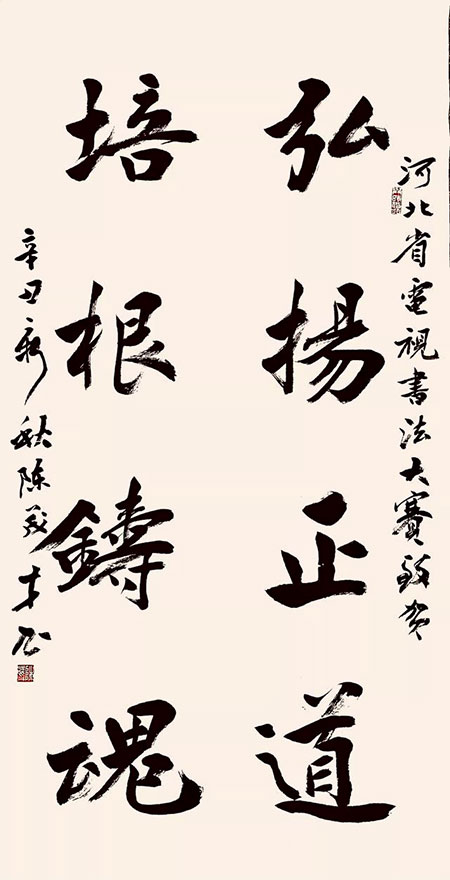 河北省電視書法大賽致賀
弘揚正道
培根鑄魂
辛丑新秋陈茂才书